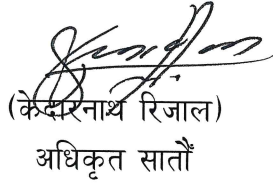 (केदारनाथ रिजाल)
अधिकृत सातौं